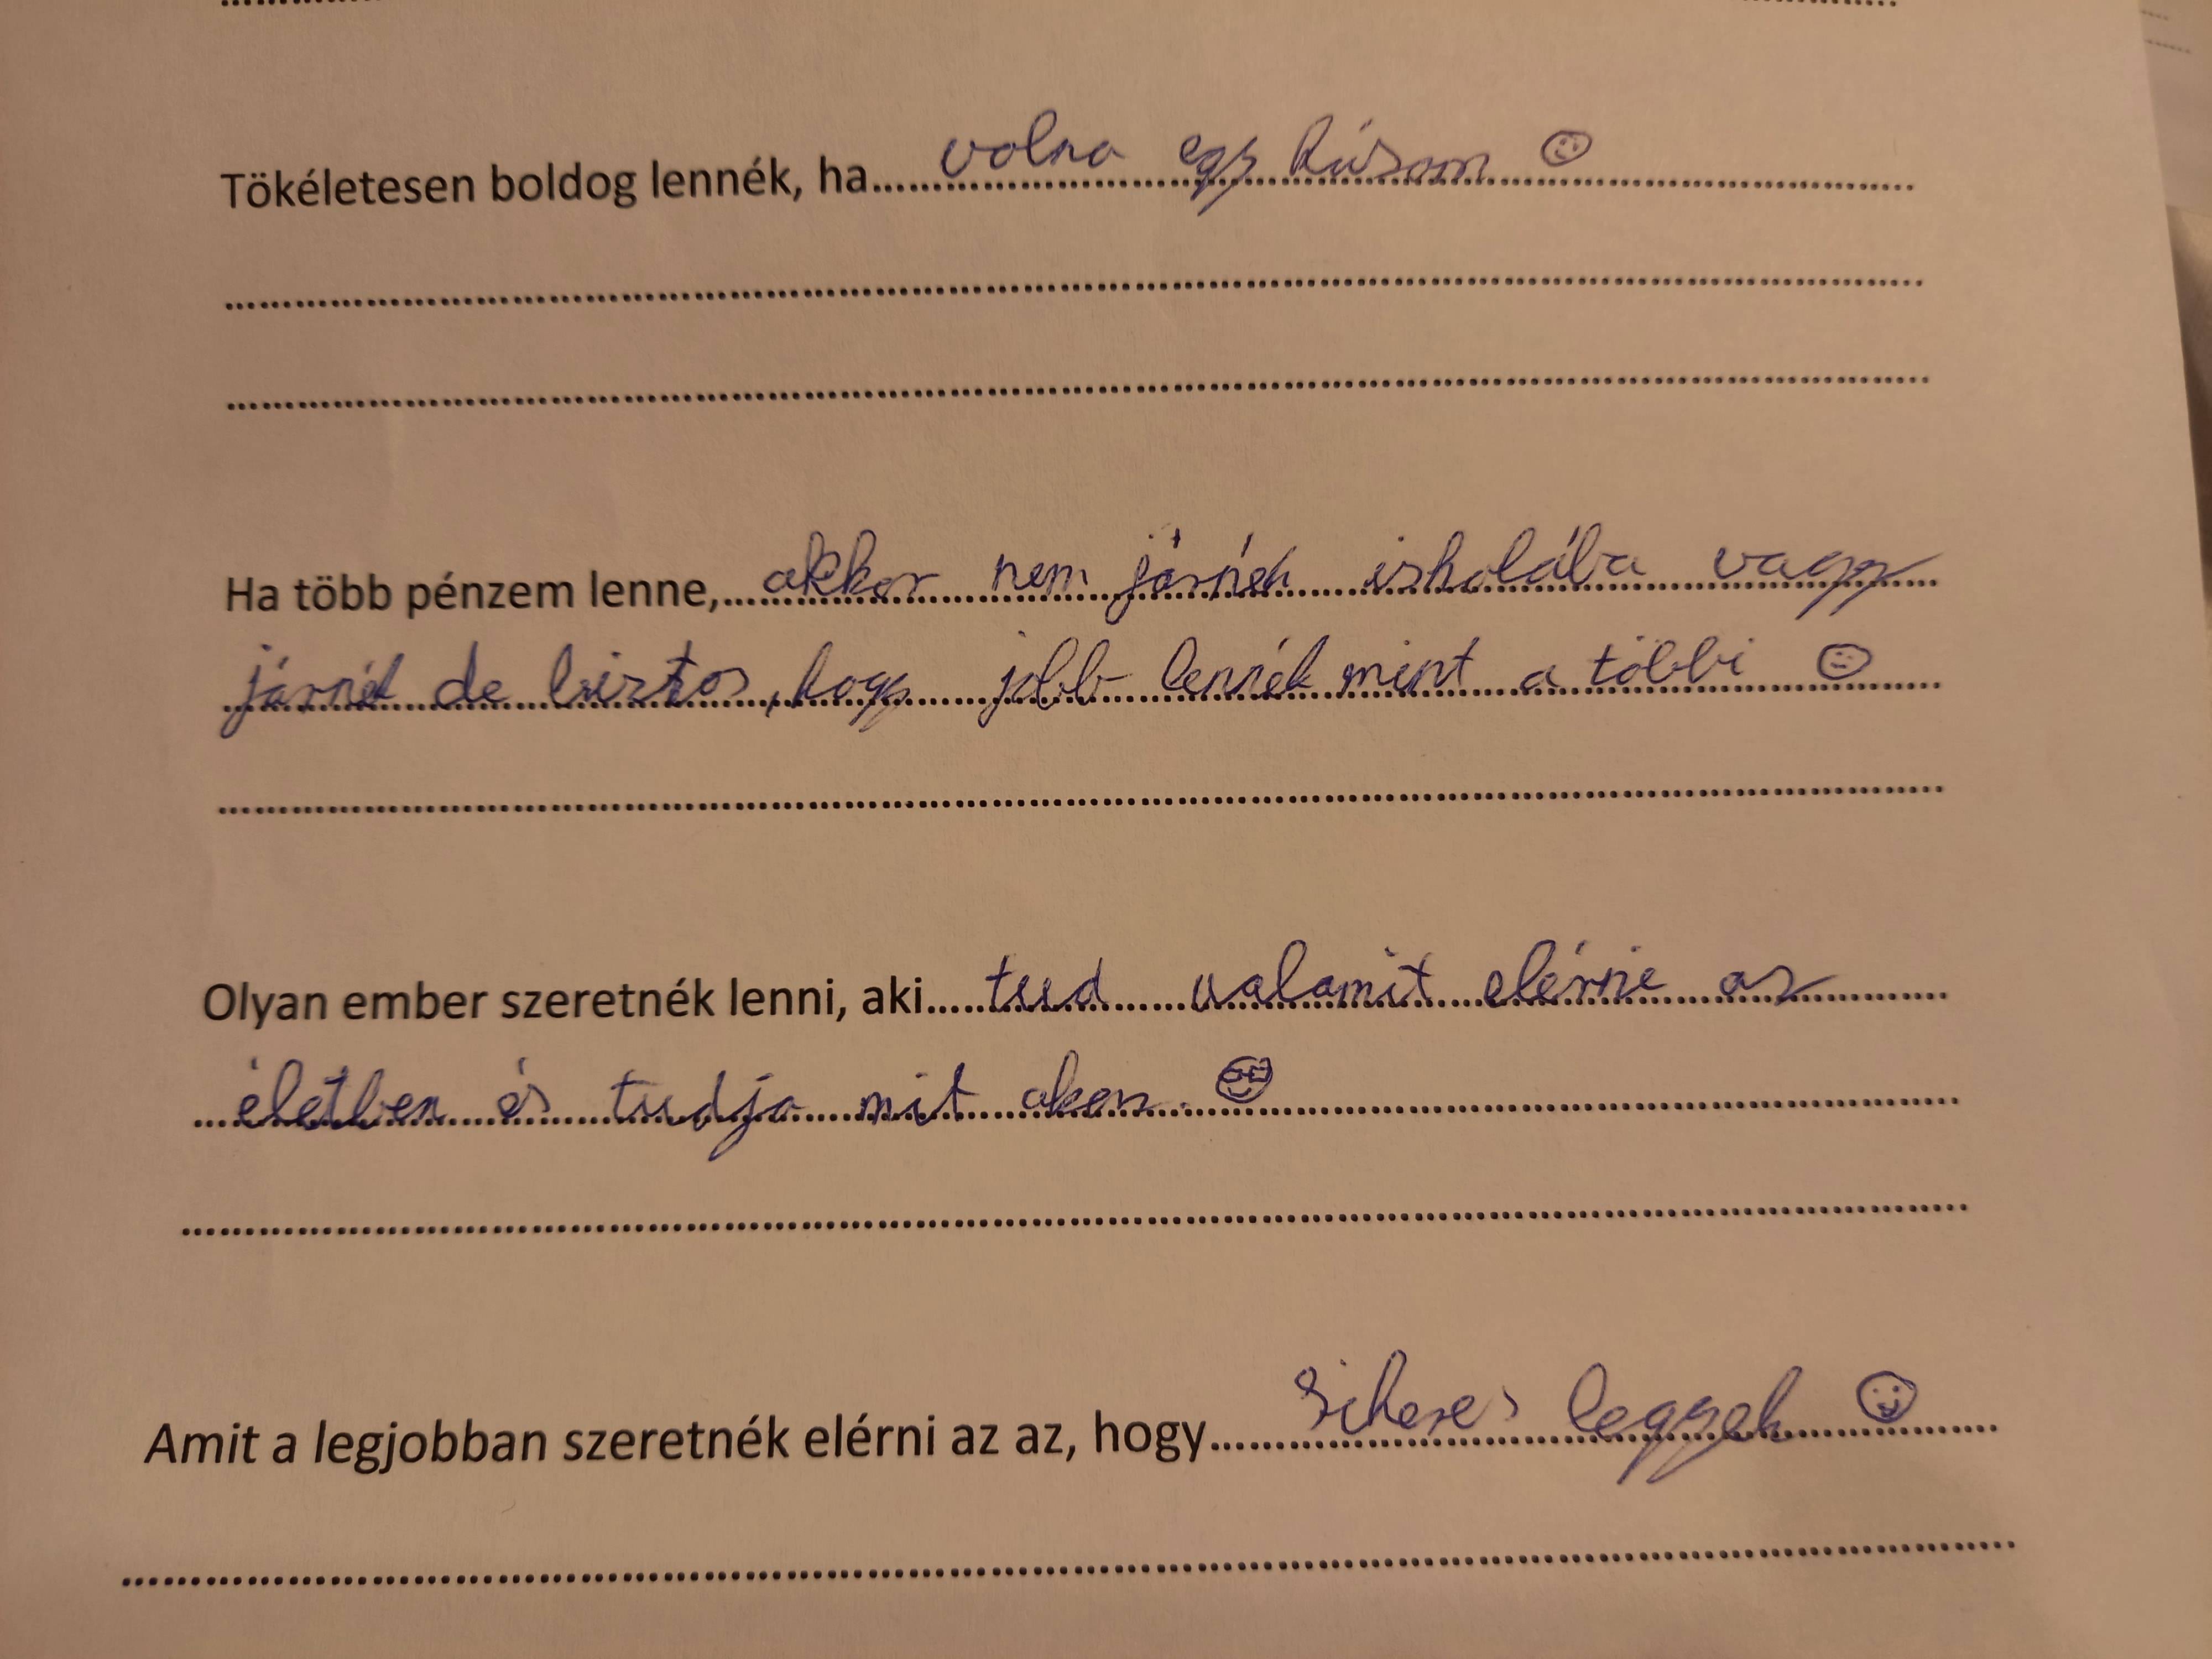 Tökéletesen boldog lennék, ha volna egy húsom
Ha több pénzem lenne, akkor nem járnék iskolába vagy
járnék de biztos, hogy jobb lennék mint a többi
Olyan ember szeretnék lenni, aki tud valamit elérnie az
életben és tudja mit akar.
Amit a legjobban szeretnék elérni az az, hogy sikeres leggyek